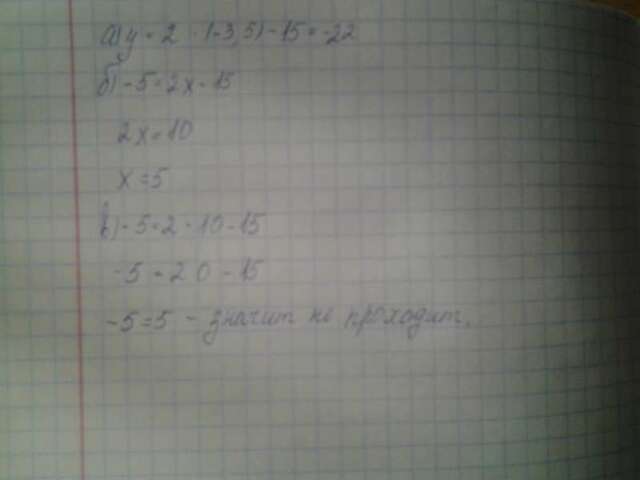 а) y = 2 · (-3,5) - 15 = -22
б) -5 = 2x - 15
2x = 10
x = 5
в) -5 = 2 · 10 - 15
-5 = 20 - 15
-5 = 5 - значит не проходит.